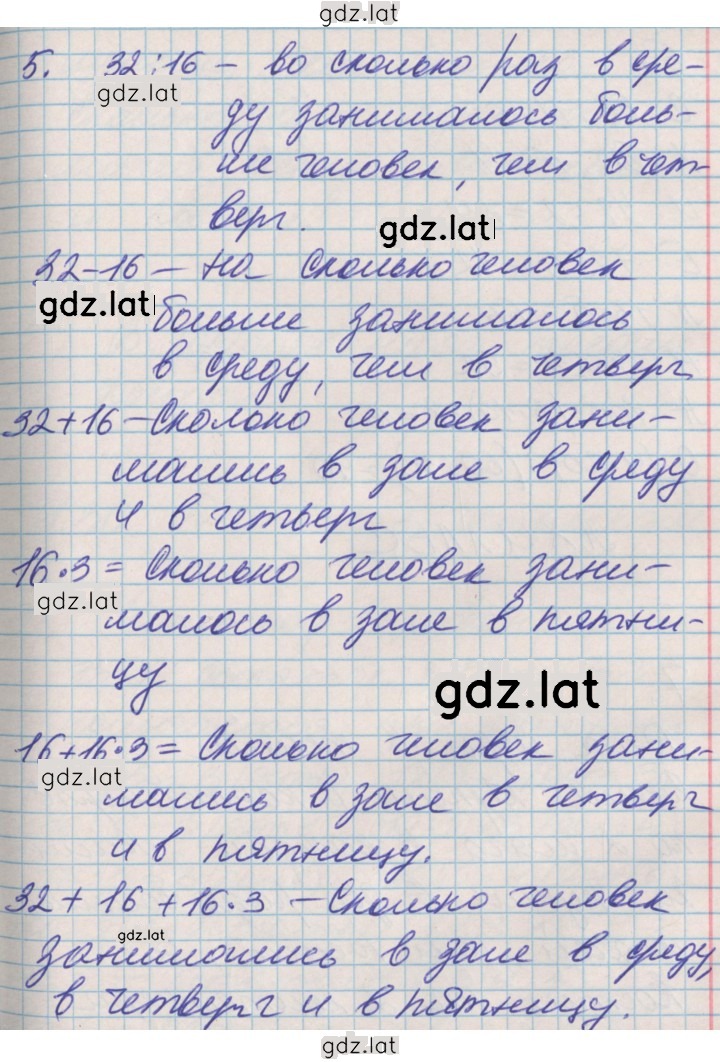 gdz.lat
5. 32:16 – во сколько раз в сре-
gdz.lat
ду занималось боль-
ше человек, чем в чет-
верг.
gdz.lat
32-16 – на сколько человек
gdz.lat
больше занималось
в среду, чем в четверг
32+16 – Сколоко человек зани-
мались в зале в среду
и в четьверг
16·3 = Сколько человек зани-
gdz.lat
малось в зале в пятни-
цу
gdz.lat
16+16·3 = Сколько человек зани-
gdz.lat
мались в зале в четверг
и в пятницу.
32 + 16 + 16·3 – Сколько человек
gdz.lat
занимались в зале в среду,
в четверг и в пятницу.
gdz.lat